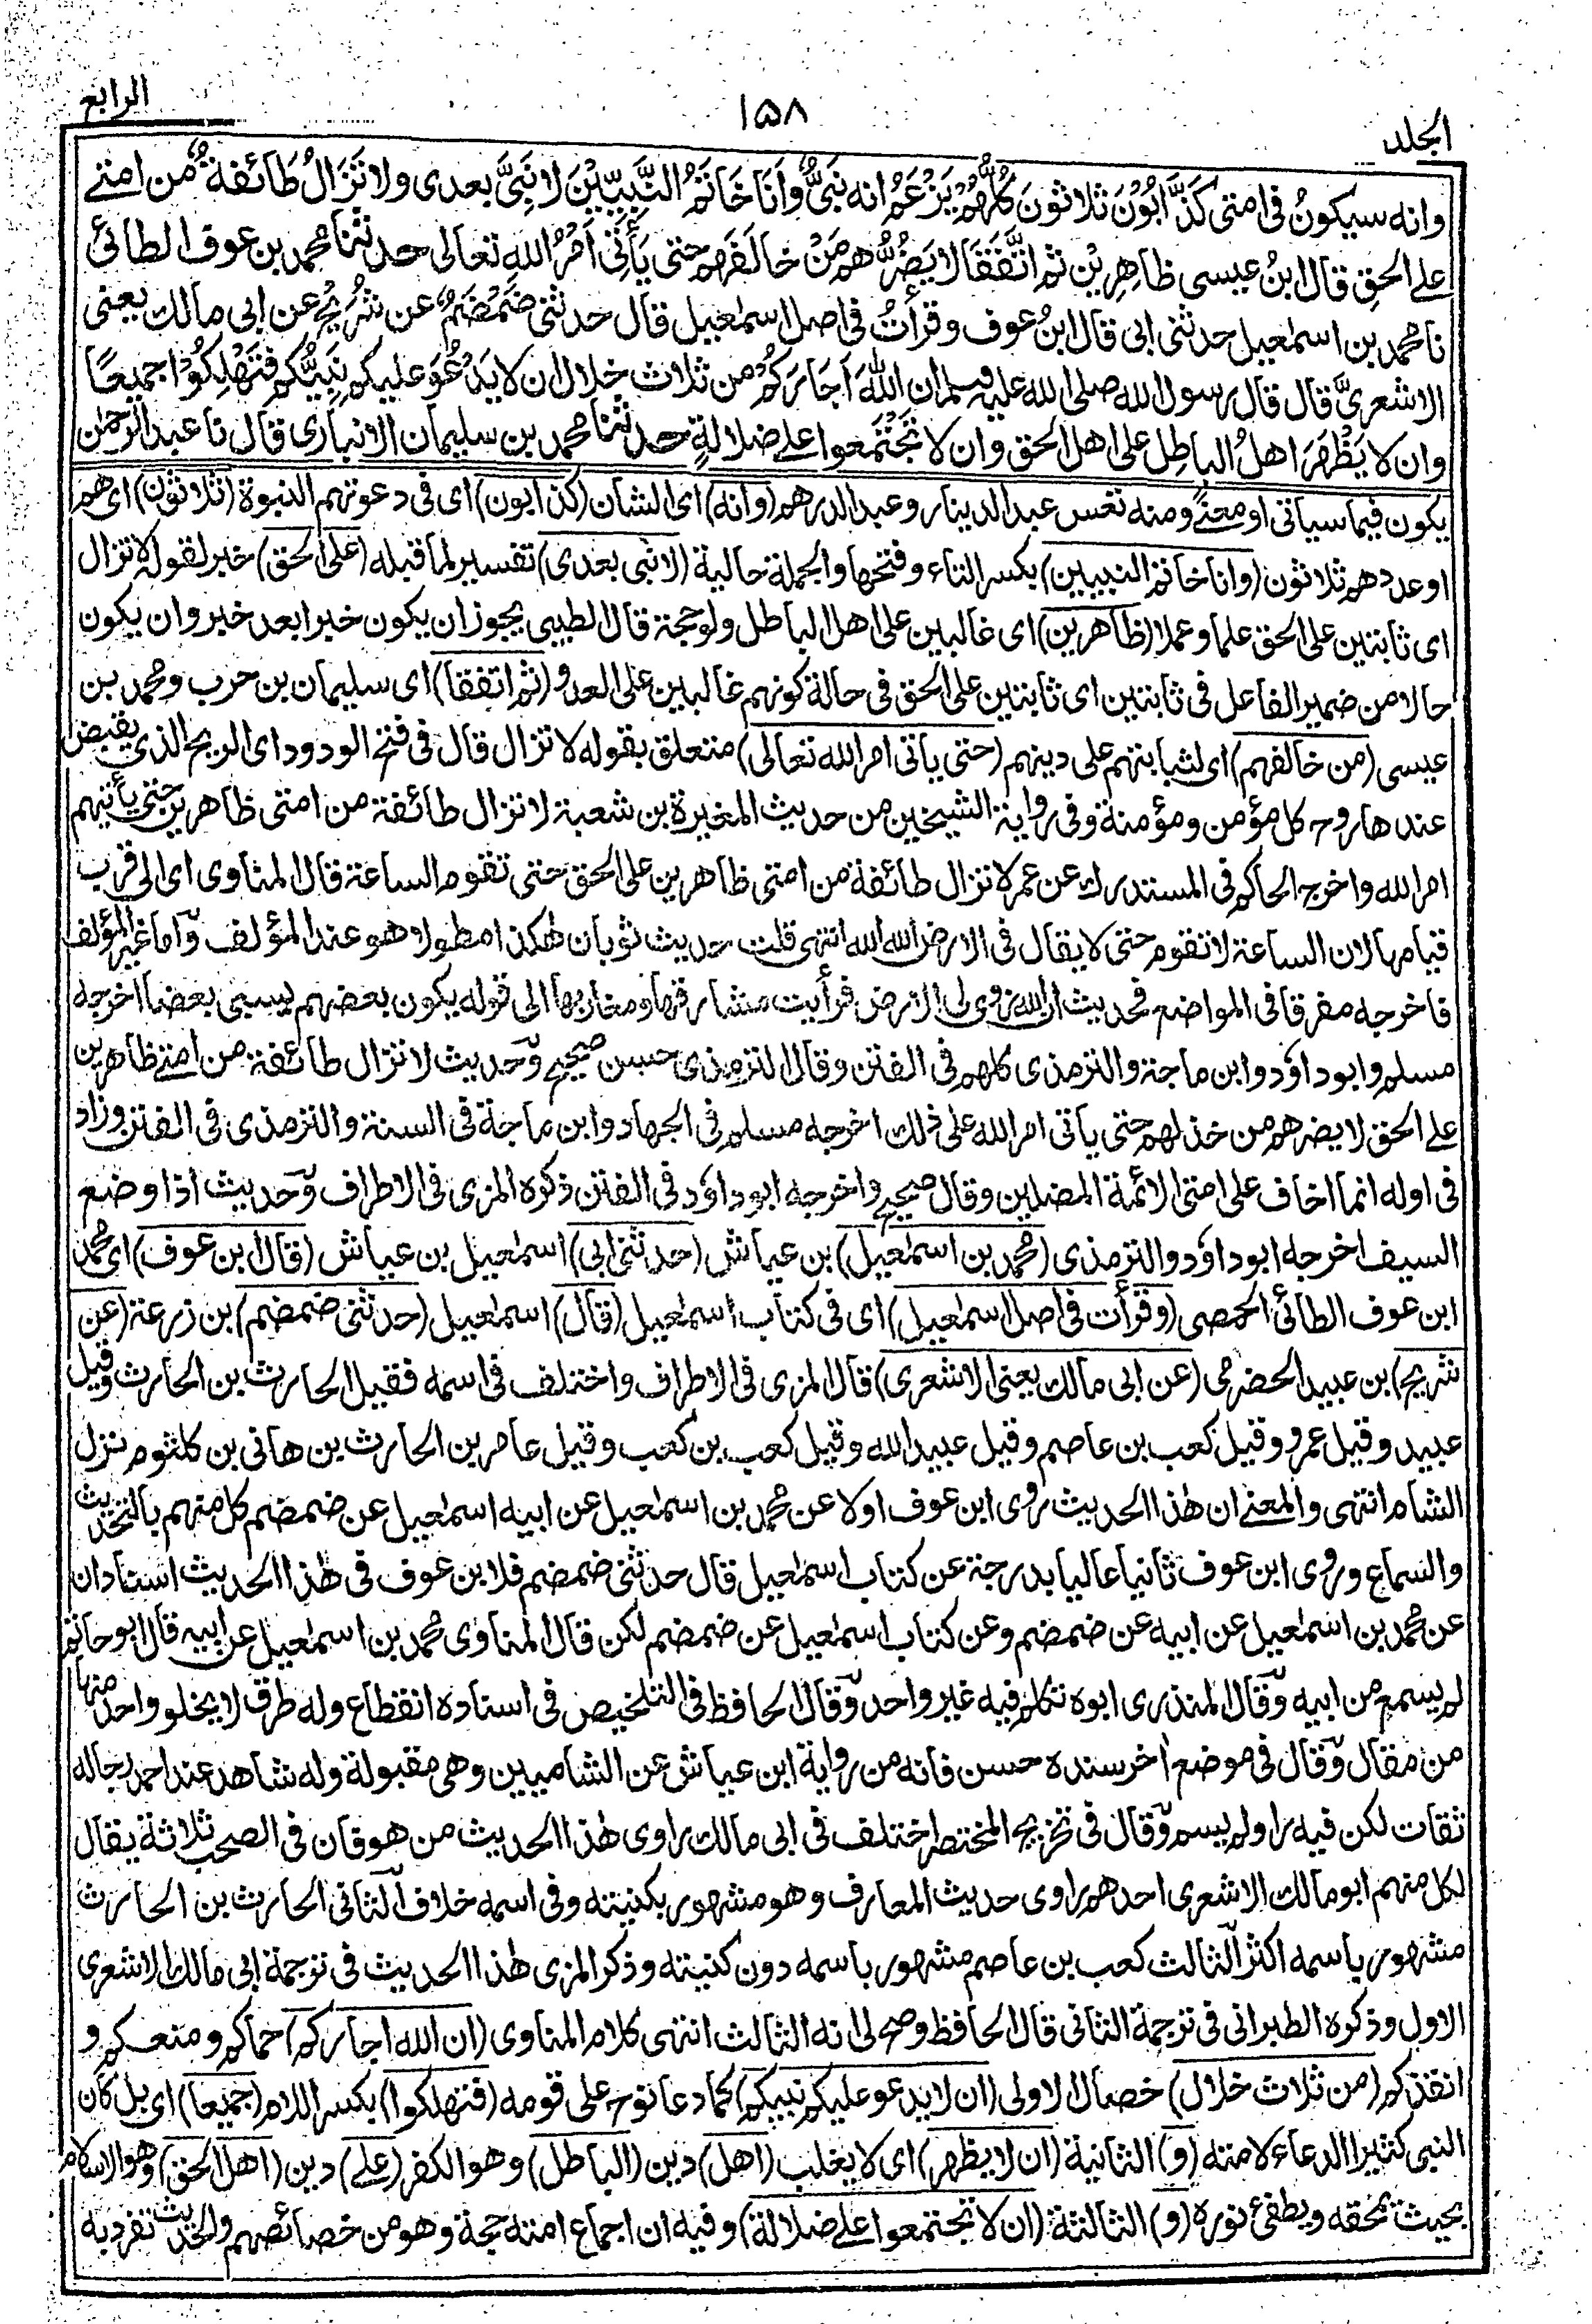 الرابع
١٥٨
الجلد
وانه سيكونُ فى امتى كَذَّابُوْنَ ثلاثونَ كُلُّهُمْ يَزْعَمُ انه نَبِىٌّ وَاَنَا خَاتَمُ النَّبِيِّيْنَ لانَبِىَّ بعدى ولا تَزَالُ طَائفةٌ من امتے
علے الحقِ قال ابنُ عيسى ظاهِرِيْن ثم اتَّفَقَا لا يَضُرُّهم مَنْ خالَفَهم حتى يَأْتِىَ اَمْرُ اللهِ تعالى حدثنا محمد بن عوف الطائىُ
نا محمد بن اسمٰعيل حدثنى ابى قال ابنُ عوف وقرأتُ فى اصل اسمٰعيل قال حدثنى ضَمْضَمٌ عن شُرَيْحٍ عن ابى مالك يعنى
الاشعرىَّ قال قال رسول الله صلى الله عليه وسلم ان اللهَ اَجَارَكُمْ من ثلاث خلال ان لا يَدْعُوَ عليكم نَبِيُّكم فتَهْلِكُوْا جميعًا
وان لا يَظْهَرَ اهلُ الباطِل على اهل الحق وان لا تَجْتَمعوا علے ضلالةٍ حدثنا محمد بن سليمان الانبارى قال نا عبد الرحمٰن
يكون فيما سياتى او معنےً ومنه تعس عبد الدينار وعبد الدرهم (وانه) اى الشان (كذابون) اى فى دعوتهم النبوة (ثلاثون) اى هم
اوعددهم ثلاثون (وانا خاتم النبيين) بكسر التاء وفتحها والجملة حالية (لا نبى بعدى) تفسير لما قبله (على الحق) خبر لقوله لا تزال
اى ثابتين على الحق علما وعملا (ظاهرين) اى غالبين على اهل الباطل ولو حجة قال الطيبى يجوز ان يكون خبرا بعد خبر وان يكون
حالا من ضمير الفاعل فى ثابتين اى ثابتين على الحق فى حالة كونهم غالبين على العدو (ثم اتفقا) اى سليمان بن حرب ومحمد بن
عيسى (من خالفهم) اى لثباتهم على دينهم (حتى ياتى امر الله تعالى) متعلق بقوله لا تزال قال فى فتح الودود اى الريح الذى يقبض
عندها روح كل مؤمن ومؤمنة وفى رواية الشيخين من حديث المغيرة بن شعبة لا تزال طائفة من امتى ظاهرين حتى يأتيهم
امر الله واخرج الحاكم فى المستدرك عن عمر لا تزال طائفة من امتى ظاهرين على الحق حتى تقوم الساعة قال المناوى اى الى قرب
قيامها لان الساعة لا تقوم حتى لا يقال فى الارض الله الله انتهى قلت حديث ثوبان هٰكذا مطولا هو عند المؤلف وّاما غير المؤلف
فاخرجه مفرقا فى المواضع فحديث ان الله زوى لى الارض فرأيت مشارقها ومغاربها الى قوله يكون بعضهم يسبى بعضا اخرجه
مسلم وابو داؤد وابن ماجة والترمذى كلهم فى الفتن وقال الترمذى حسن صحيح وّحديث لا تزال طائفة من امتے ظاهرين
علے الحق لا يضرهم من خذلهم حتى ياتى امر الله على ذلك اخرجه مسلم فى الجهاد وابن ماجة فى السنة والترمذى فى الفتن وزاد
فى اوله انما اخاف على امتى الائمة المضلين وقال صحيح واخرجه ابو داؤد فى الفتن ذكره المزى فى الاطراف وّحديث اذا وضع
السيف اخرجه ابو داؤد والترمذى (محمد بن اسمٰعيل) بن عياش (حدثنى ابى) اسمٰعيل بن عياش (قال ابن عوف) اى محمد
ابن عوف الطائى الحمصى (وقرأت فى اصل اسمٰعيل) اى فى كتاب اسمٰعيل (قال) اسمٰعيل (حدثنى ضمضم) بن زرعة (عن
شريح) بن عبيد الحضرمى (عن ابى مالك يعنى الاشعرى) قال المزى فى الاطراف واختلف فى اسمه فقيل الحارث بن الحارث وقيل
عبيد وقيل عمرو وقيل كعب بن عاصم وقيل عبيد الله وقيل كعب بن كعب وقيل عامر بن الحارث بن هانى بن كلثوم نزل
الشام انتهى والمعنے ان هٰذا الحديث روى ابن عوف اولا عن محمد بن اسمٰعيل عن ابيه اسمٰعيل عن ضمضم كل منهم بالتحديث
والسماع وروى ابن عوف ثانيا عاليا بدرجة عن كتاب اسمٰعيل قال حدثنى ضمضم فلابن عوف فى هٰذا الحديث اسنادان
عن محمد بن اسمٰعيل عن ابيه عن ضمضم وعن كتاب اسمٰعيل عن ضمضم لكن قال المناوى محمد بن اسمٰعيل عن ابيه قال ابو حاتم
لم يسمع من ابيه وّقال المنذرى ابوه تكلم فيه غير واحد وّقال الحافظ فى التلخيص فى اسناده انقطاع وله طرق لا يخلو واحد منها
من مقال وّقال فى موضع اٰخر سنده حسن فانه من رواية ابن عياش عن الشاميين وهى مقبولة وله شاهد عند احمد رجاله
ثقات لكن فيه راو لم يسم وّقال فى تخريج المختصر اختلف فى ابى مالك راوى هٰذا الحديث من هو فان فى الصحب ثلاثة يقال
لكل منهم ابو مالك الاشعرى احدهم راوى حديث المعازف وهو مشهور بكنيته وفى اسمه خلاف الثانى الحارث بن الحارث
مشهور باسمه اكثر الثالث كعب بن عاصم مشهور باسمه دون كنيته وذكر المزى هٰذا الحديث فى ترجمة ابى مالك الاشعرى
الاول وذكره الطبرانى فى ترجمة الثانى قال الحافظ وصح لى انه الثالث انتهى كلام المناوى (ان الله اجاركم) حماكم ومنعكم و
انقذكم (من ثلاث خلال) خصال الاولى (ان لا يدعو عليكم نبيكم) كما دعا نوح على قومه (فتهلكوا) بكسر اللام (جميعا) اى بل كان
النبى كثير الدعاء لامته (و) الثانية (ان لا يظهر) اى لا يغلب (اهل) دين (الباطل) وهو الكفر (علے) دين (اهل الحق) وهو الاسلام
بحيث يمحقه ويطفئ نوره (و) الثالثة (ان لا تجتمعوا علے ضلالة) وفيه ان اجماع امته حجة وهو من خصائصهم والحديث تفرد به